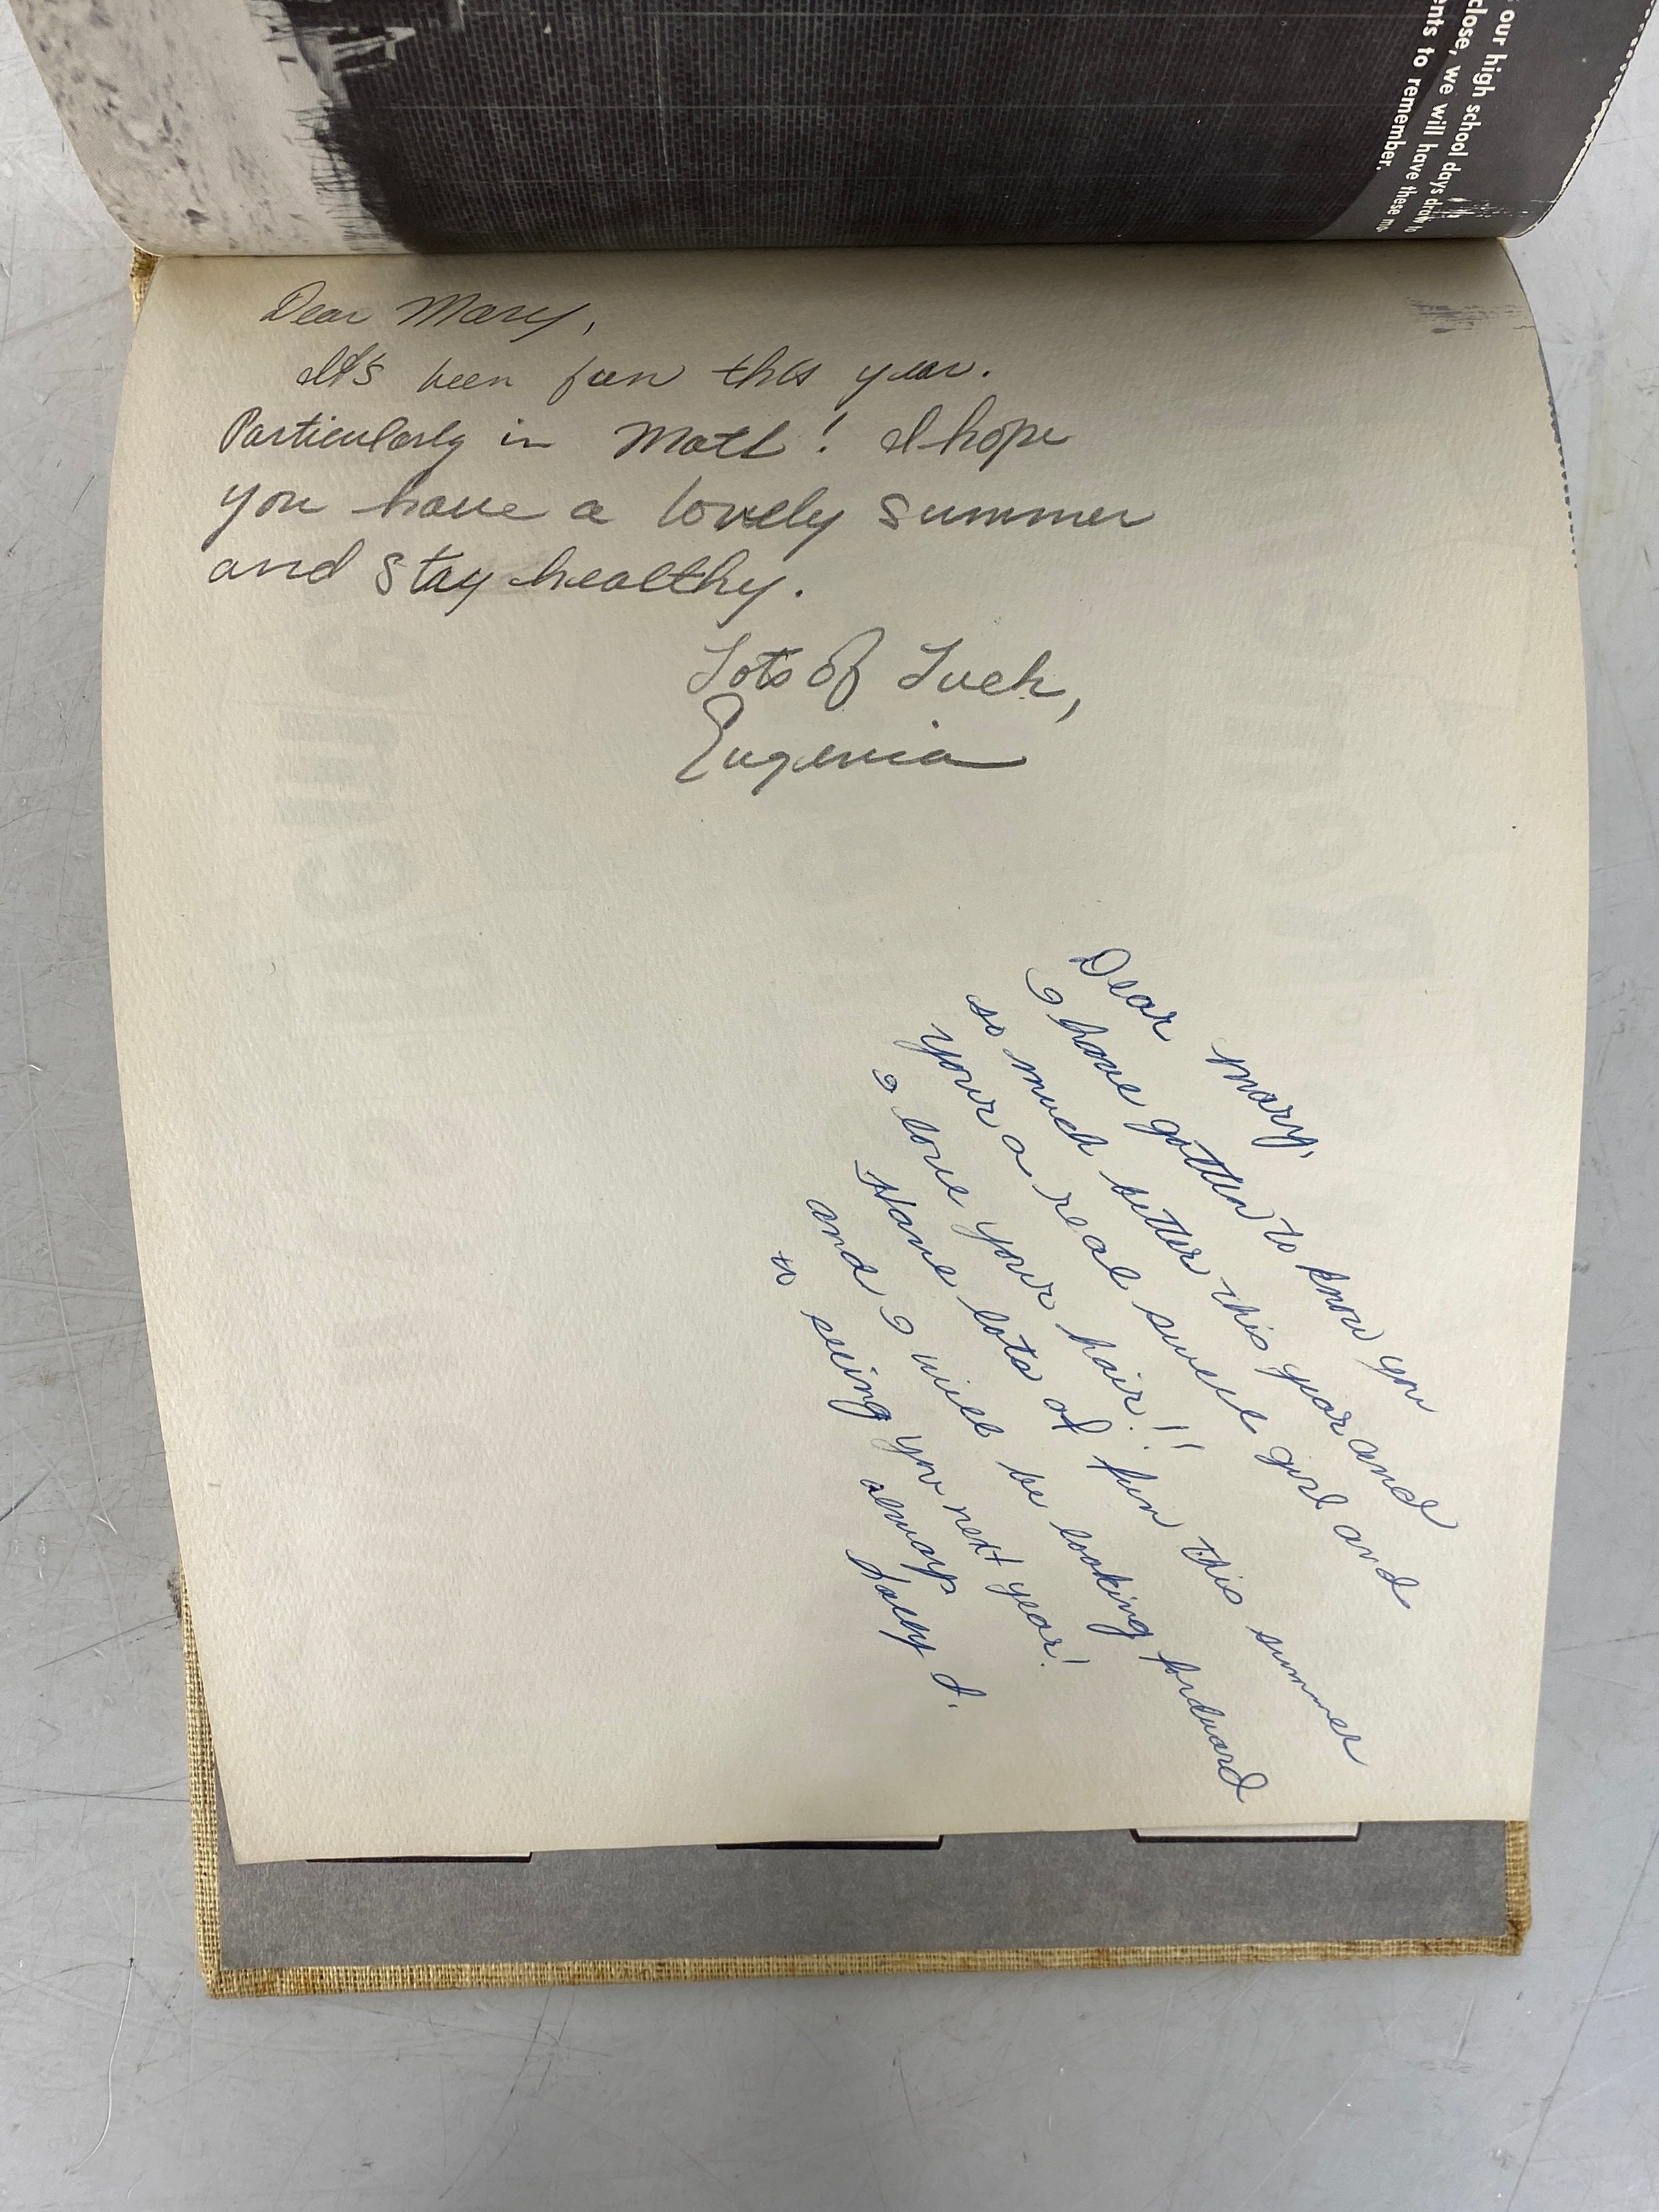 our high school days draw to
close, we will have these mo-
ents to remember.
Dear Mary,
It's been fun this year.
Particularly in Math! I hope
you have a lovely summer
and stay healthy.
Lots of Luck,
Eugenia
Dear Mary,
I have gotten to know you
so much better this year and
your a real sweet girl and
I love your hair!!
Have lots of fun this summer
and I will be looking fordward
to seeing you next year!
always
J.